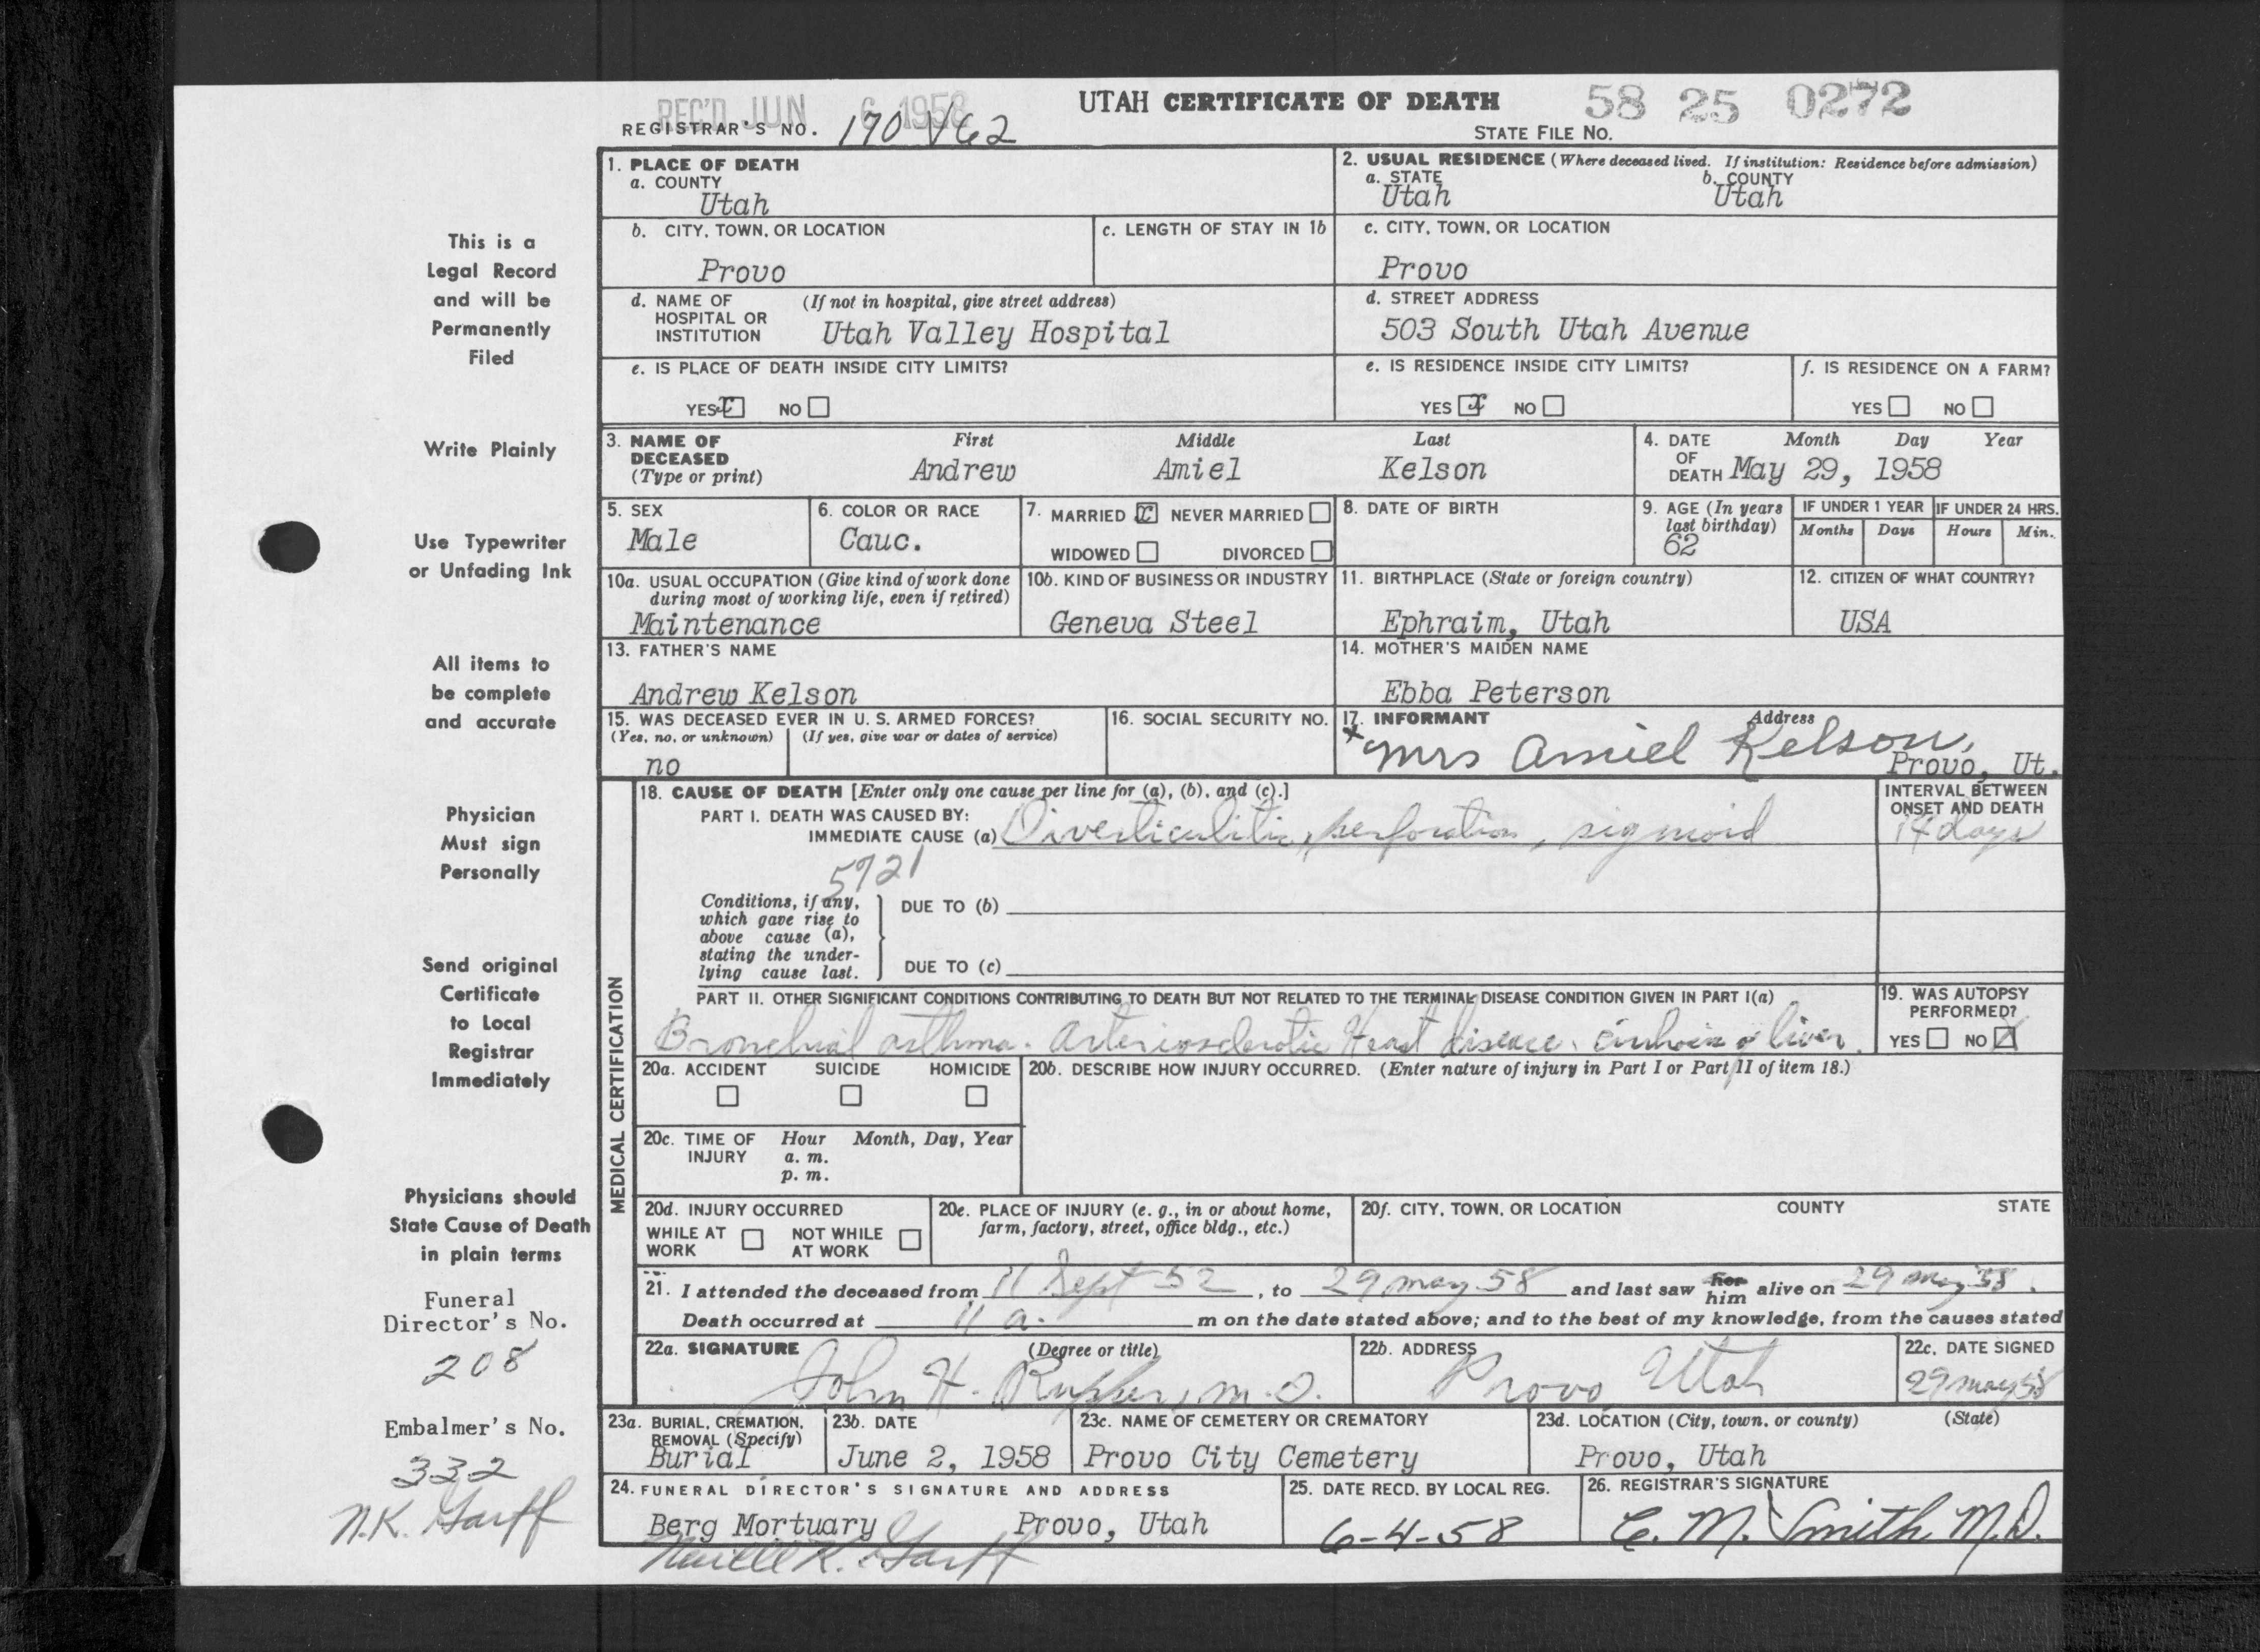 REC'D JUN 6 1958
UTAH CERTIFICATE OF DEATH
58 25 0272
REGISTRAR'S NO. 170 V62
STATE FILE NO.
This is a
Legal Record
and will be
Permanently
Filed
Write Plainly
Use Typewriter
or Unfading Ink
All items to
be complete
and accurate
Physician
Must sign
Personally
Send original
Certificate
to Local
Registrar
Immediately
Physicians should
State Cause of Death
in plain terms
Funeral
Director's No.
208
Embalmer's No.
332
N.K. Garff
1. PLACE OF DEATH
a. COUNTY
Utah
2. USUAL RESIDENCE (Where deceased lived. If institution: Residence before admission)
a. STATE b. COUNTY
Utah Utah
b. CITY, TOWN, OR LOCATION
Provo
c. LENGTH OF STAY IN 1b
c. CITY, TOWN, OR LOCATION
Provo
d. NAME OF (If not in hospital, give street address)
HOSPITAL OR
INSTITUTION Utah Valley Hospital
d. STREET ADDRESS
503 South Utah Avenue
e. IS PLACE OF DEATH INSIDE CITY LIMITS?
YES x NO
e. IS RESIDENCE INSIDE CITY LIMITS?
YES x NO
f. IS RESIDENCE ON A FARM?
YES NO
3. NAME OF First Middle Last
DECEASED
(Type or print) Andrew Amiel Kelson
4. DATE Month Day Year
OF
DEATH May 29, 1958
5. SEX
Male
6. COLOR OR RACE
Cauc.
7. MARRIED x NEVER MARRIED
WIDOWED DIVORCED
8. DATE OF BIRTH
9. AGE (In years
last birthday)
62
IF UNDER 1 YEAR IF UNDER 24 HRS.
Months Days Hours Min.
10a. USUAL OCCUPATION (Give kind of work done
during most of working life, even if retired)
Maintenance
10b. KIND OF BUSINESS OR INDUSTRY
Geneva Steel
11. BIRTHPLACE (State or foreign country)
Ephraim, Utah
12. CITIZEN OF WHAT COUNTRY?
USA
13. FATHER'S NAME
Andrew Kelson
14. MOTHER'S MAIDEN NAME
Ebba Peterson
15. WAS DECEASED EVER IN U. S. ARMED FORCES?
(Yes, no, or unknown) (If yes, give war or dates of service)
no
16. SOCIAL SECURITY NO.
17. INFORMANT Address
x Mrs Amiel Kelson,
Provo, Ut.
MEDICAL CERTIFICATION
18. CAUSE OF DEATH [Enter only one cause per line for (a), (b), and (c).]
PART I. DEATH WAS CAUSED BY:
IMMEDIATE CAUSE (a) Diverticulitis, perforation, sigmoid
INTERVAL BETWEEN
ONSET AND DEATH
14 days
5721
Conditions, if any,
which gave rise to
above cause (a),
stating the under-
lying cause last.
DUE TO (b)
DUE TO (c)
PART II. OTHER SIGNIFICANT CONDITIONS CONTRIBUTING TO DEATH BUT NOT RELATED TO THE TERMINAL DISEASE CONDITION GIVEN IN PART I(a)
Bronchial asthma. Arteriosclerotic Heart disease. cirrhosis of liver.
19. WAS AUTOPSY
PERFORMED?
YES NO x
20a. ACCIDENT SUICIDE HOMICIDE
20b. DESCRIBE HOW INJURY OCCURRED. (Enter nature of injury in Part I or Part II of item 18.)
20c. TIME OF Hour Month, Day, Year
INJURY a. m.
p. m.
20d. INJURY OCCURRED
WHILE AT NOT WHILE
WORK AT WORK
20e. PLACE OF INJURY (e. g., in or about home,
farm, factory, street, office bldg., etc.)
20f. CITY, TOWN, OR LOCATION COUNTY STATE
21. I attended the deceased from 11 Sept 52, to 29 May 58 and last saw her him alive on 29 May 58.
Death occurred at 11 a. m on the date stated above; and to the best of my knowledge, from the causes stated
22a. SIGNATURE (Degree or title)
John H. Rupper, M.D.
22b. ADDRESS
Provo Utah
22c. DATE SIGNED
29 May 58
23a. BURIAL, CREMATION,
REMOVAL (Specify)
Burial
23b. DATE
June 2, 1958
23c. NAME OF CEMETERY OR CREMATORY
Provo City Cemetery
23d. LOCATION (City, town, or county) (State)
Provo, Utah
24. FUNERAL DIRECTOR'S SIGNATURE AND ADDRESS
Berg Mortuary Provo, Utah
K. Garff
25. DATE RECD. BY LOCAL REG.
6-4-58
26. REGISTRAR'S SIGNATURE
C. M. Smith M.D.